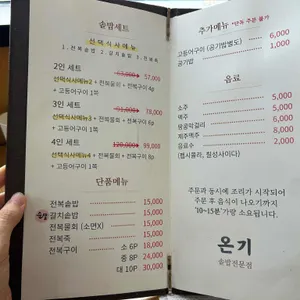 솥밥세트
선택식사메뉴
1. 전복솥밥 2. 갈치솥밥 3. 전복죽
2인 세트
57,000
선택식사메뉴2 + 전복물회 + 전복구이 4p
+ 고등어구이 1쪽
3인 세트
78,000
선택식사메뉴3 + 전복물회 + 전복구이 6p
+ 고등어구이 1쪽
4인 세트
120,000 99,000
선택식사메뉴4 + 전복물회 + 전복구이 8p
+ 고등어구이 1쪽
단품메뉴
전복솥밥 15,000
갈치솥밥 15,000
전복물회 (소면X) 15,000
전복죽 15,000
전복구이 소 6P 18,000
중 8P 24,000
대 10P 30,000
추가메뉴 *단독 주문 불가
고등어구이 (공기밥별도) 6,000
공기밥 1,000
음료
소주 5,000
맥주 5,000
땅콩막걸리 5,000
제주맥주 8,000
음료수 2,000
(펩시콜라, 칠성사이다)
주문과 동시에 조리가 시작되어
주문 후 음식이 나오기까지
'10~15분'가량 소요됩니다.
온기
솥밥전문점